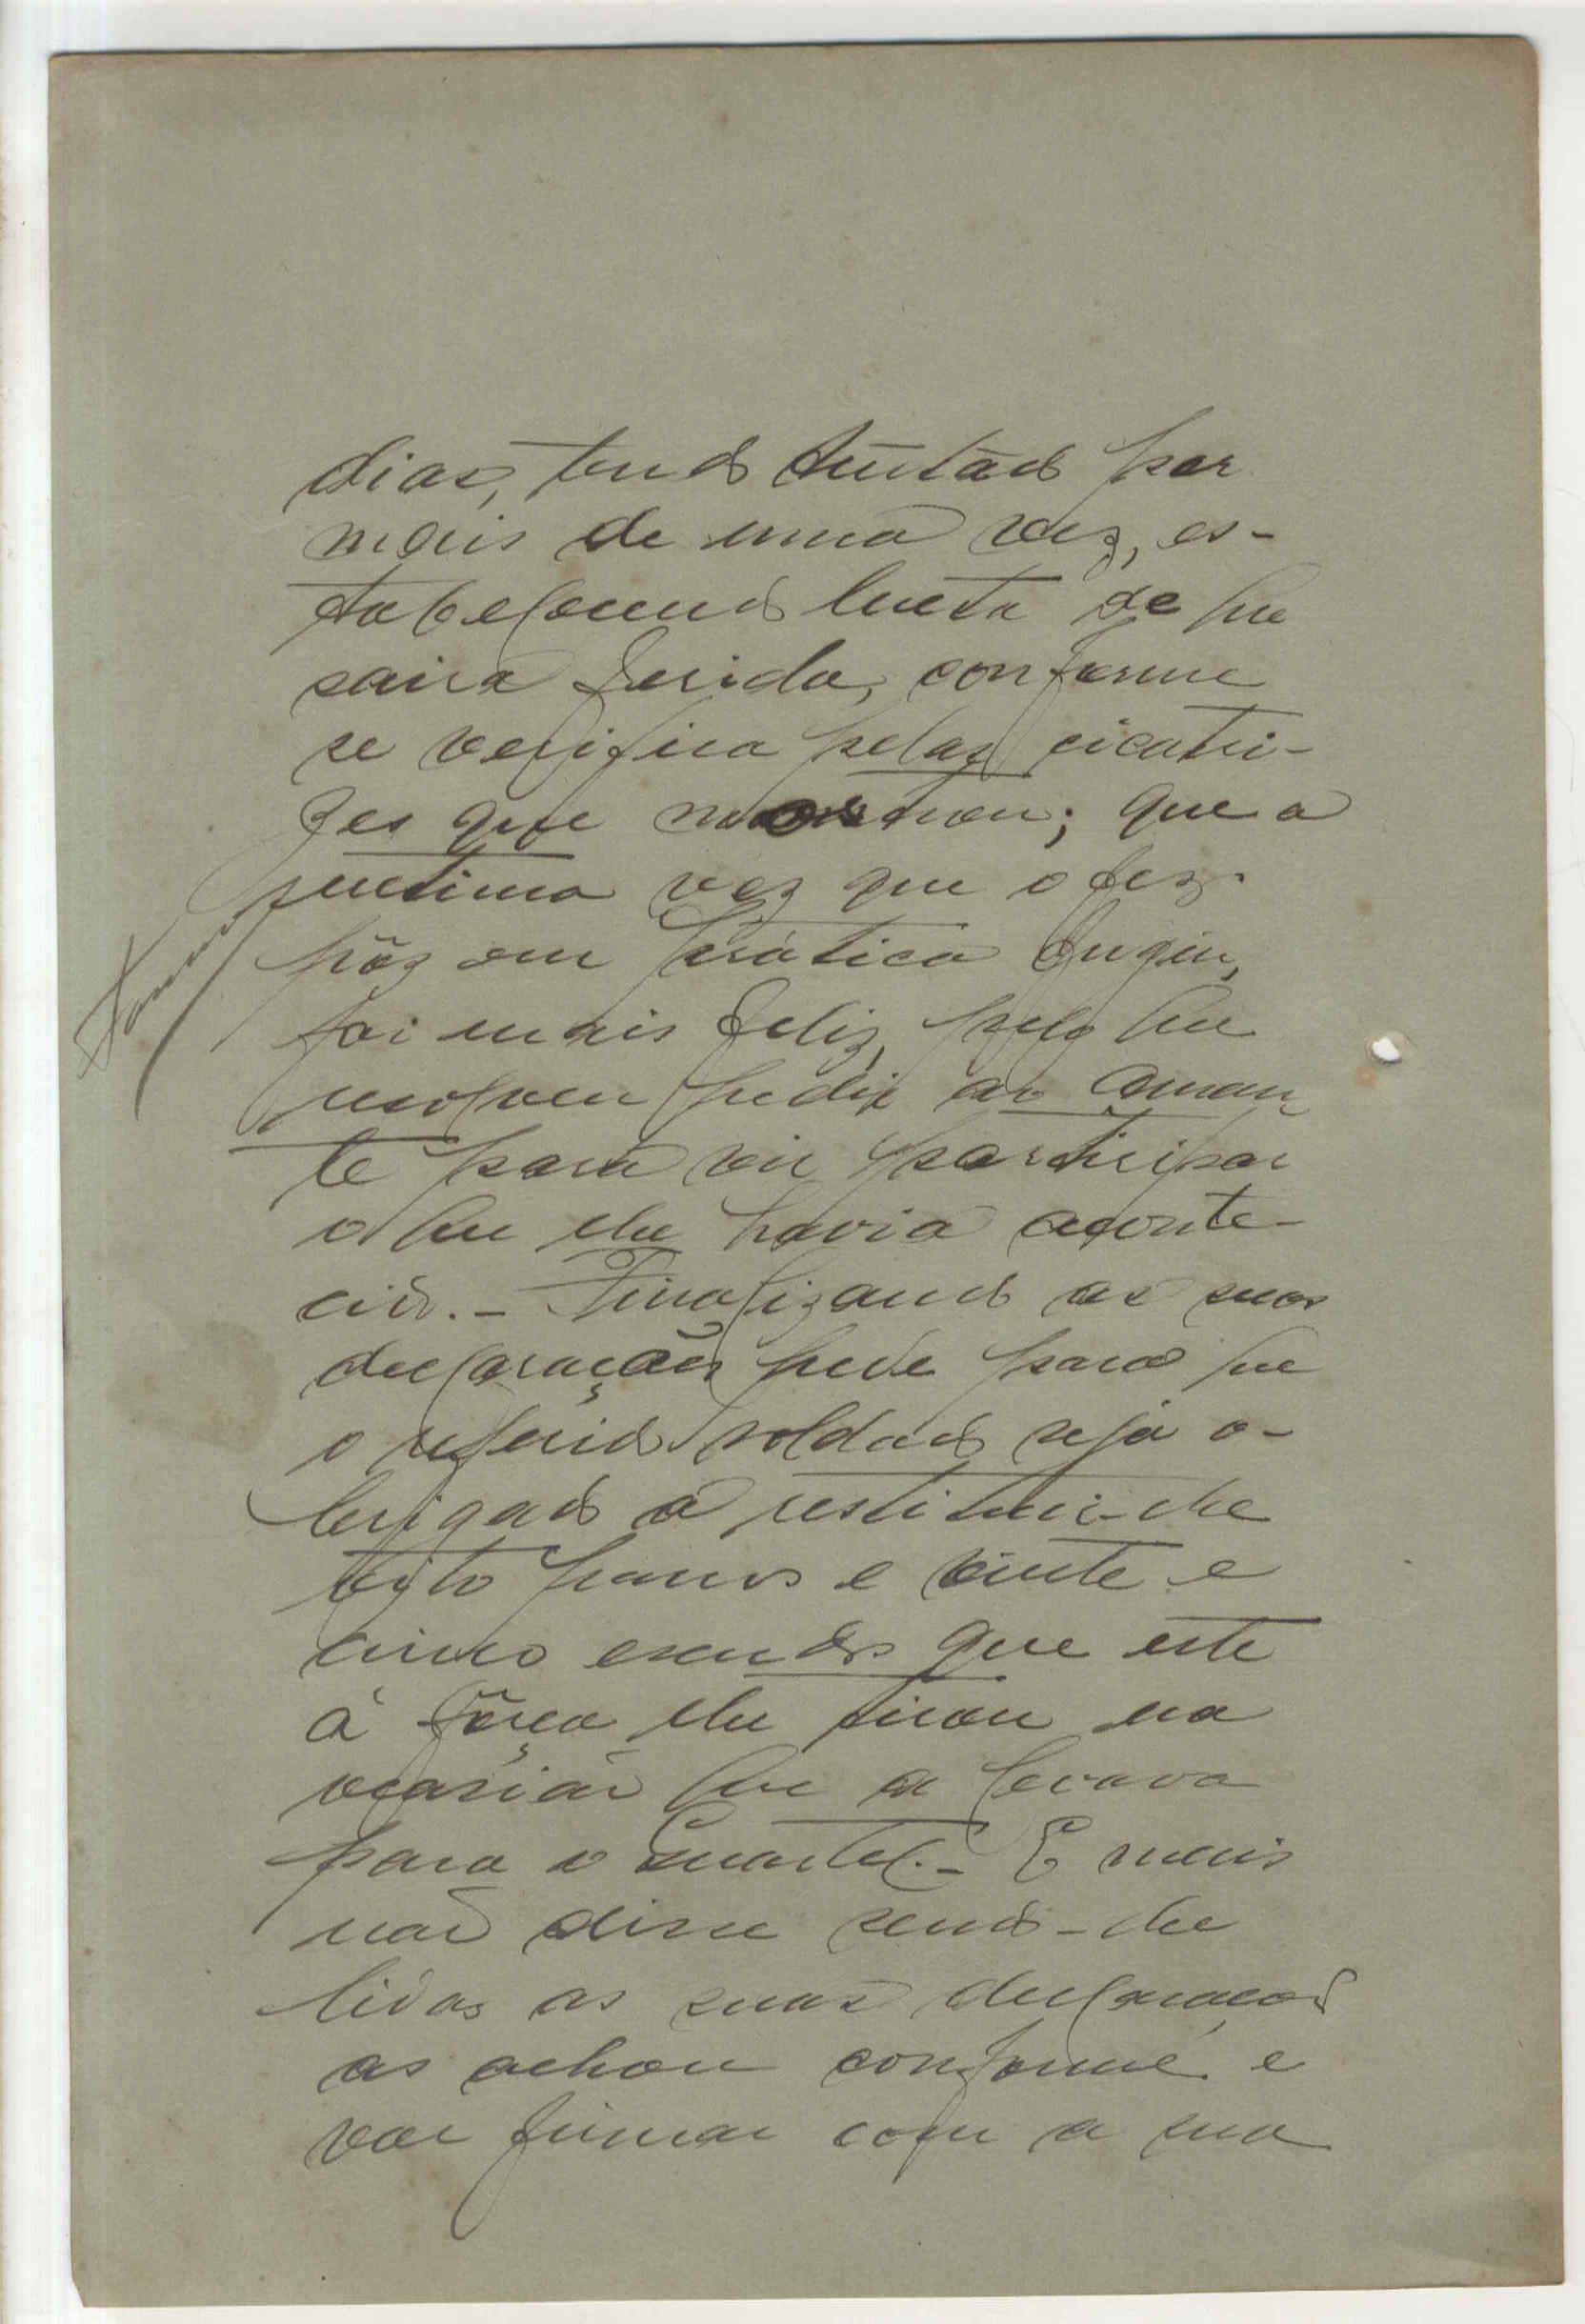 dias, tendo tentado por
mais de uma vez, es-
tabelecendo lucta de que
saira ferida, conforme
se verifica pelas cicatri-
zes que mostrou; que a
ultima vez que o fez
pôz em prática fugir,
foi mais feliz, pelo que
resolveu pedir ao aman
te para vir participar
o que lhe havia aconte-
cido. - Finalizando as suas
declarações pede para que
o referido soldado seja o-
brigado a restituir-lhe
oito panos e vinte e
cinco escudos que este
á fôrça lhe tirou na
ocasião que a levava
para o Quartel. - E mais
não disse sendo-lhe
lidas as suas declarações
as achou conforme e
vae firmar com a sua